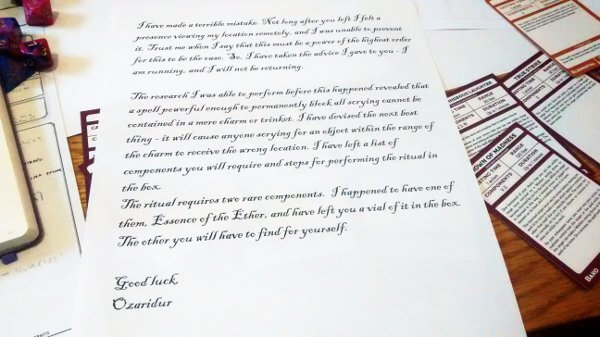 I have made a terrible mistake. Not long after you left I felt a
presence viewing my location remotely, and I was unable to prevent
it. Trust me when I say that this must be a power of the highest order
for this to be the case. So, I have taken the advice I gave to you - I
am running, and I will not be returning.
The research I was able to perform before this happened revealed that
a spell powerful enough to permanently block all scrying cannot be
contained in a mere charm or trinket. I have devised the next best
thing - it will cause anyone scrying for an object within the range of
the charm to receive the wrong location. I have left a list of
components you will require and steps for performing the ritual in
the box.
The ritual requires two rare components. I happened to have one of
them, Essence of the Ether, and have left you a vial of it in the box.
The other you will have to find for yourself.
Good luck
Ozaridur
TRUE STRIKE
RANGE
COMPONENTS
DURATION
CROWN OF MADNESS
CASTING TIME
RANGE
COMPONENTS
DURATION
BARD